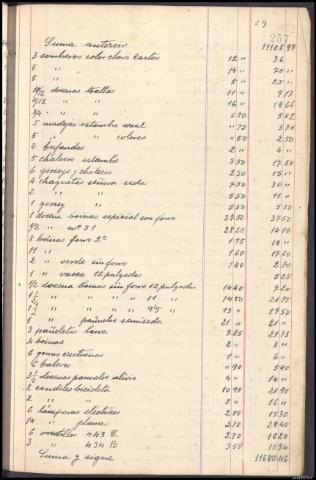 29
257
Suma anterior 11105 97
3 sombreros color claro Castor 12 " 36
5 " " 14 " 70 "
5 " " 5 " 25 "
10/12 docenas toallas 11 " 9 17
11/12 " " 16 " 14 66
3/4 " " 6 70 5 02
5 madejas estambre azul " 75 3 75
5 " " colores " 50 2 50
2 bufandas 2 " 4 "
5 chalecos estambre 3 50 17 50
6 gerseys y chalecos 2 50 15 "
4 chaquetas señora seda 7 50 30 "
2 " " 5 50 11 "
1 gersey " 5 50 5 50
1 docena boinas especial con forro 37 50 37 50
1/2 " nº 31 28 20 14 10
8 boinas forro 2ª 1 75 14 "
11 " " 1 60 17 60
2 " verde sin forro 1 40 2 80
1 " vasca 12 pulgadas 5 25
1/2 docena boinas sin forro 12 pulgadas 14 40 7 20
1 1/2 " " " " 11 " 14 50 21 75
1 1/2 " " " " 9'5 " 13 " 19 50
1 " pañuelos semiseda 21 " 21 "
3 pañoletas lana 7 25 21 75
4 boinas 2 " 8 "
6 gorras cristianas 1 " 6 "
6 " 90 5 40
3 1/2 docenas pañuelos 4 " 14 "
2 candiles bicicleta 10 95 21 90
2 " " 8 " 16 "
6 lámparas electricas 2 55 15 30
14 " plana 2 10 29 40
6 ovedillos 443 B. 2 70 16 20
3 " 434 B 3 58 10 74
Suma y sigue 11680 46